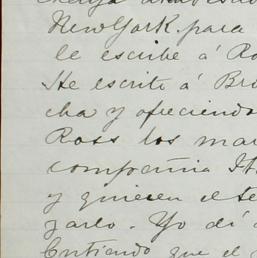 New York para
le escribe á Ro
He escrito á Br
cha y ofreciendo
Ross los mar
compañia It
y quieren el te
garlo. Yo dí
Entiendo que el